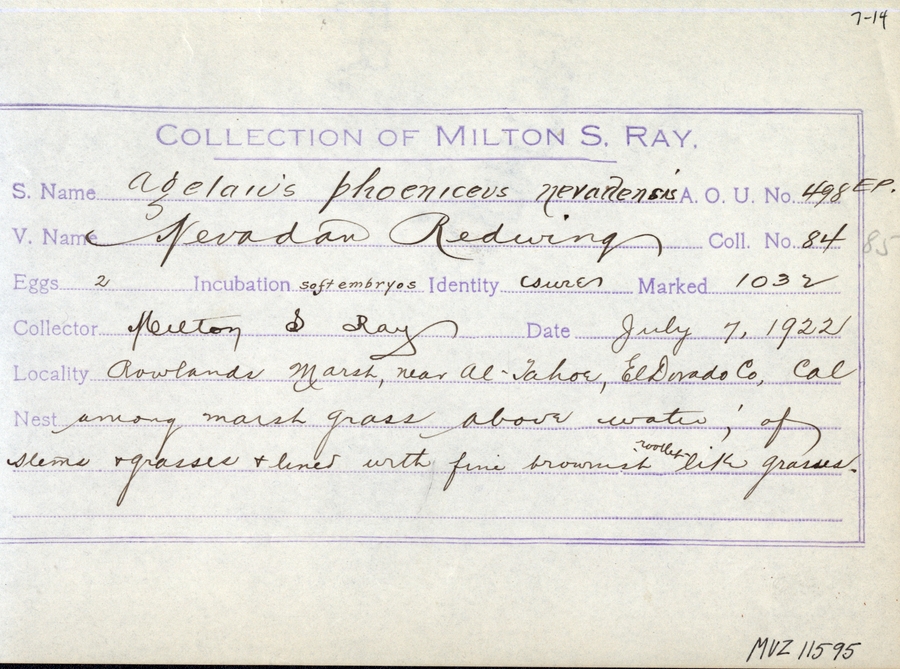 7-14
COLLECTION OF MILTON S. RAY.
S. Name Agelaius phoeniceus nevadensis A. O. U. No. 498 EP.
V. Name Nevadan Redwing Coll. No. 84 85
Eggs 2 Incubation soft embryos Identity Marked 1032
Collector Milton S Ray Date July 7, 1922
Locality Rowlands Marsh, near Al-Tahoe, El Dorado Co, Cal
Nest among marsh grass above water; of
stems + grasses + lined with fine brownish rootlet lik grasses.
MVZ 11595